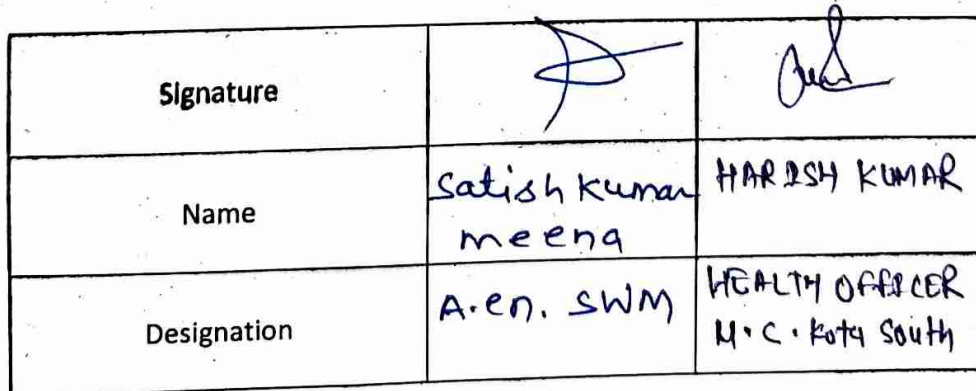 Signature
Name
Satish Kumar
meena
HARISH KUMAR
Designation
A.en. SWM
HEALTH OFFICER
M.C. Kota South